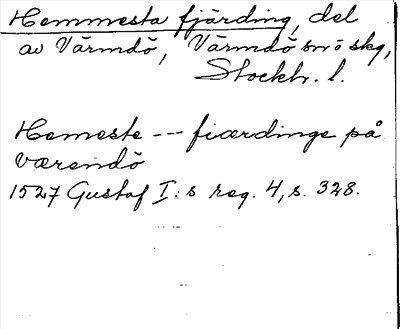 Hemmesta fjärding, del
av Värmdö, Värmdö sn o skg,
Stockh. l.
Hemeste --- fiærdinge på
værendö
1527 Gustaf I:s reg. 4, s. 328.